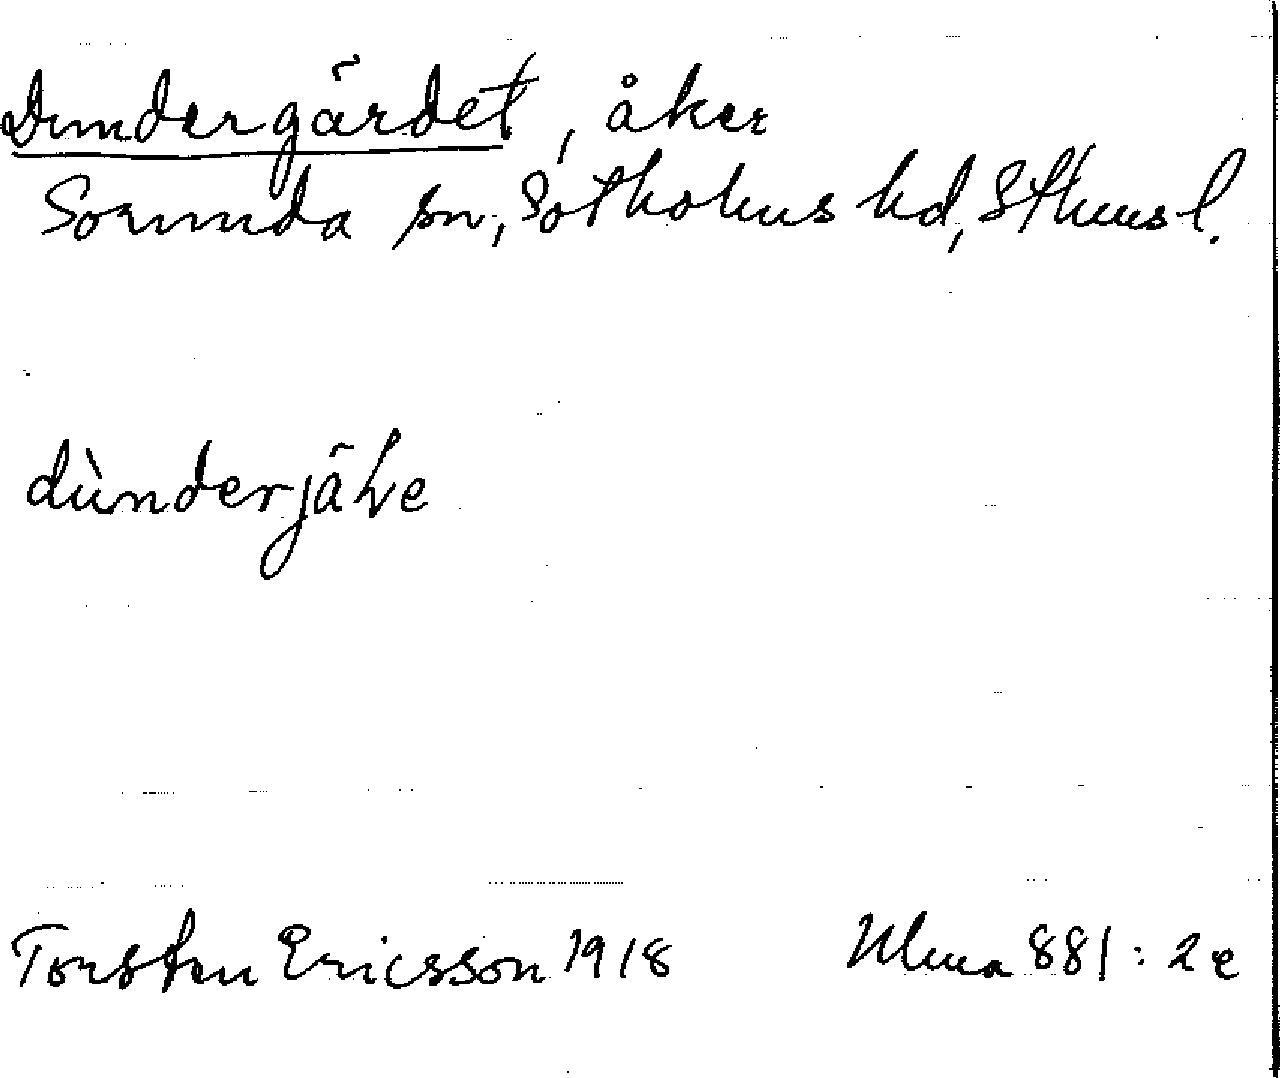 Dundergärdet, åker
Sorunda sn, Sotholms hd, Sthms l.
dùnderjäLe
Torsten Ericsson 1918 Ulma 881:2 e